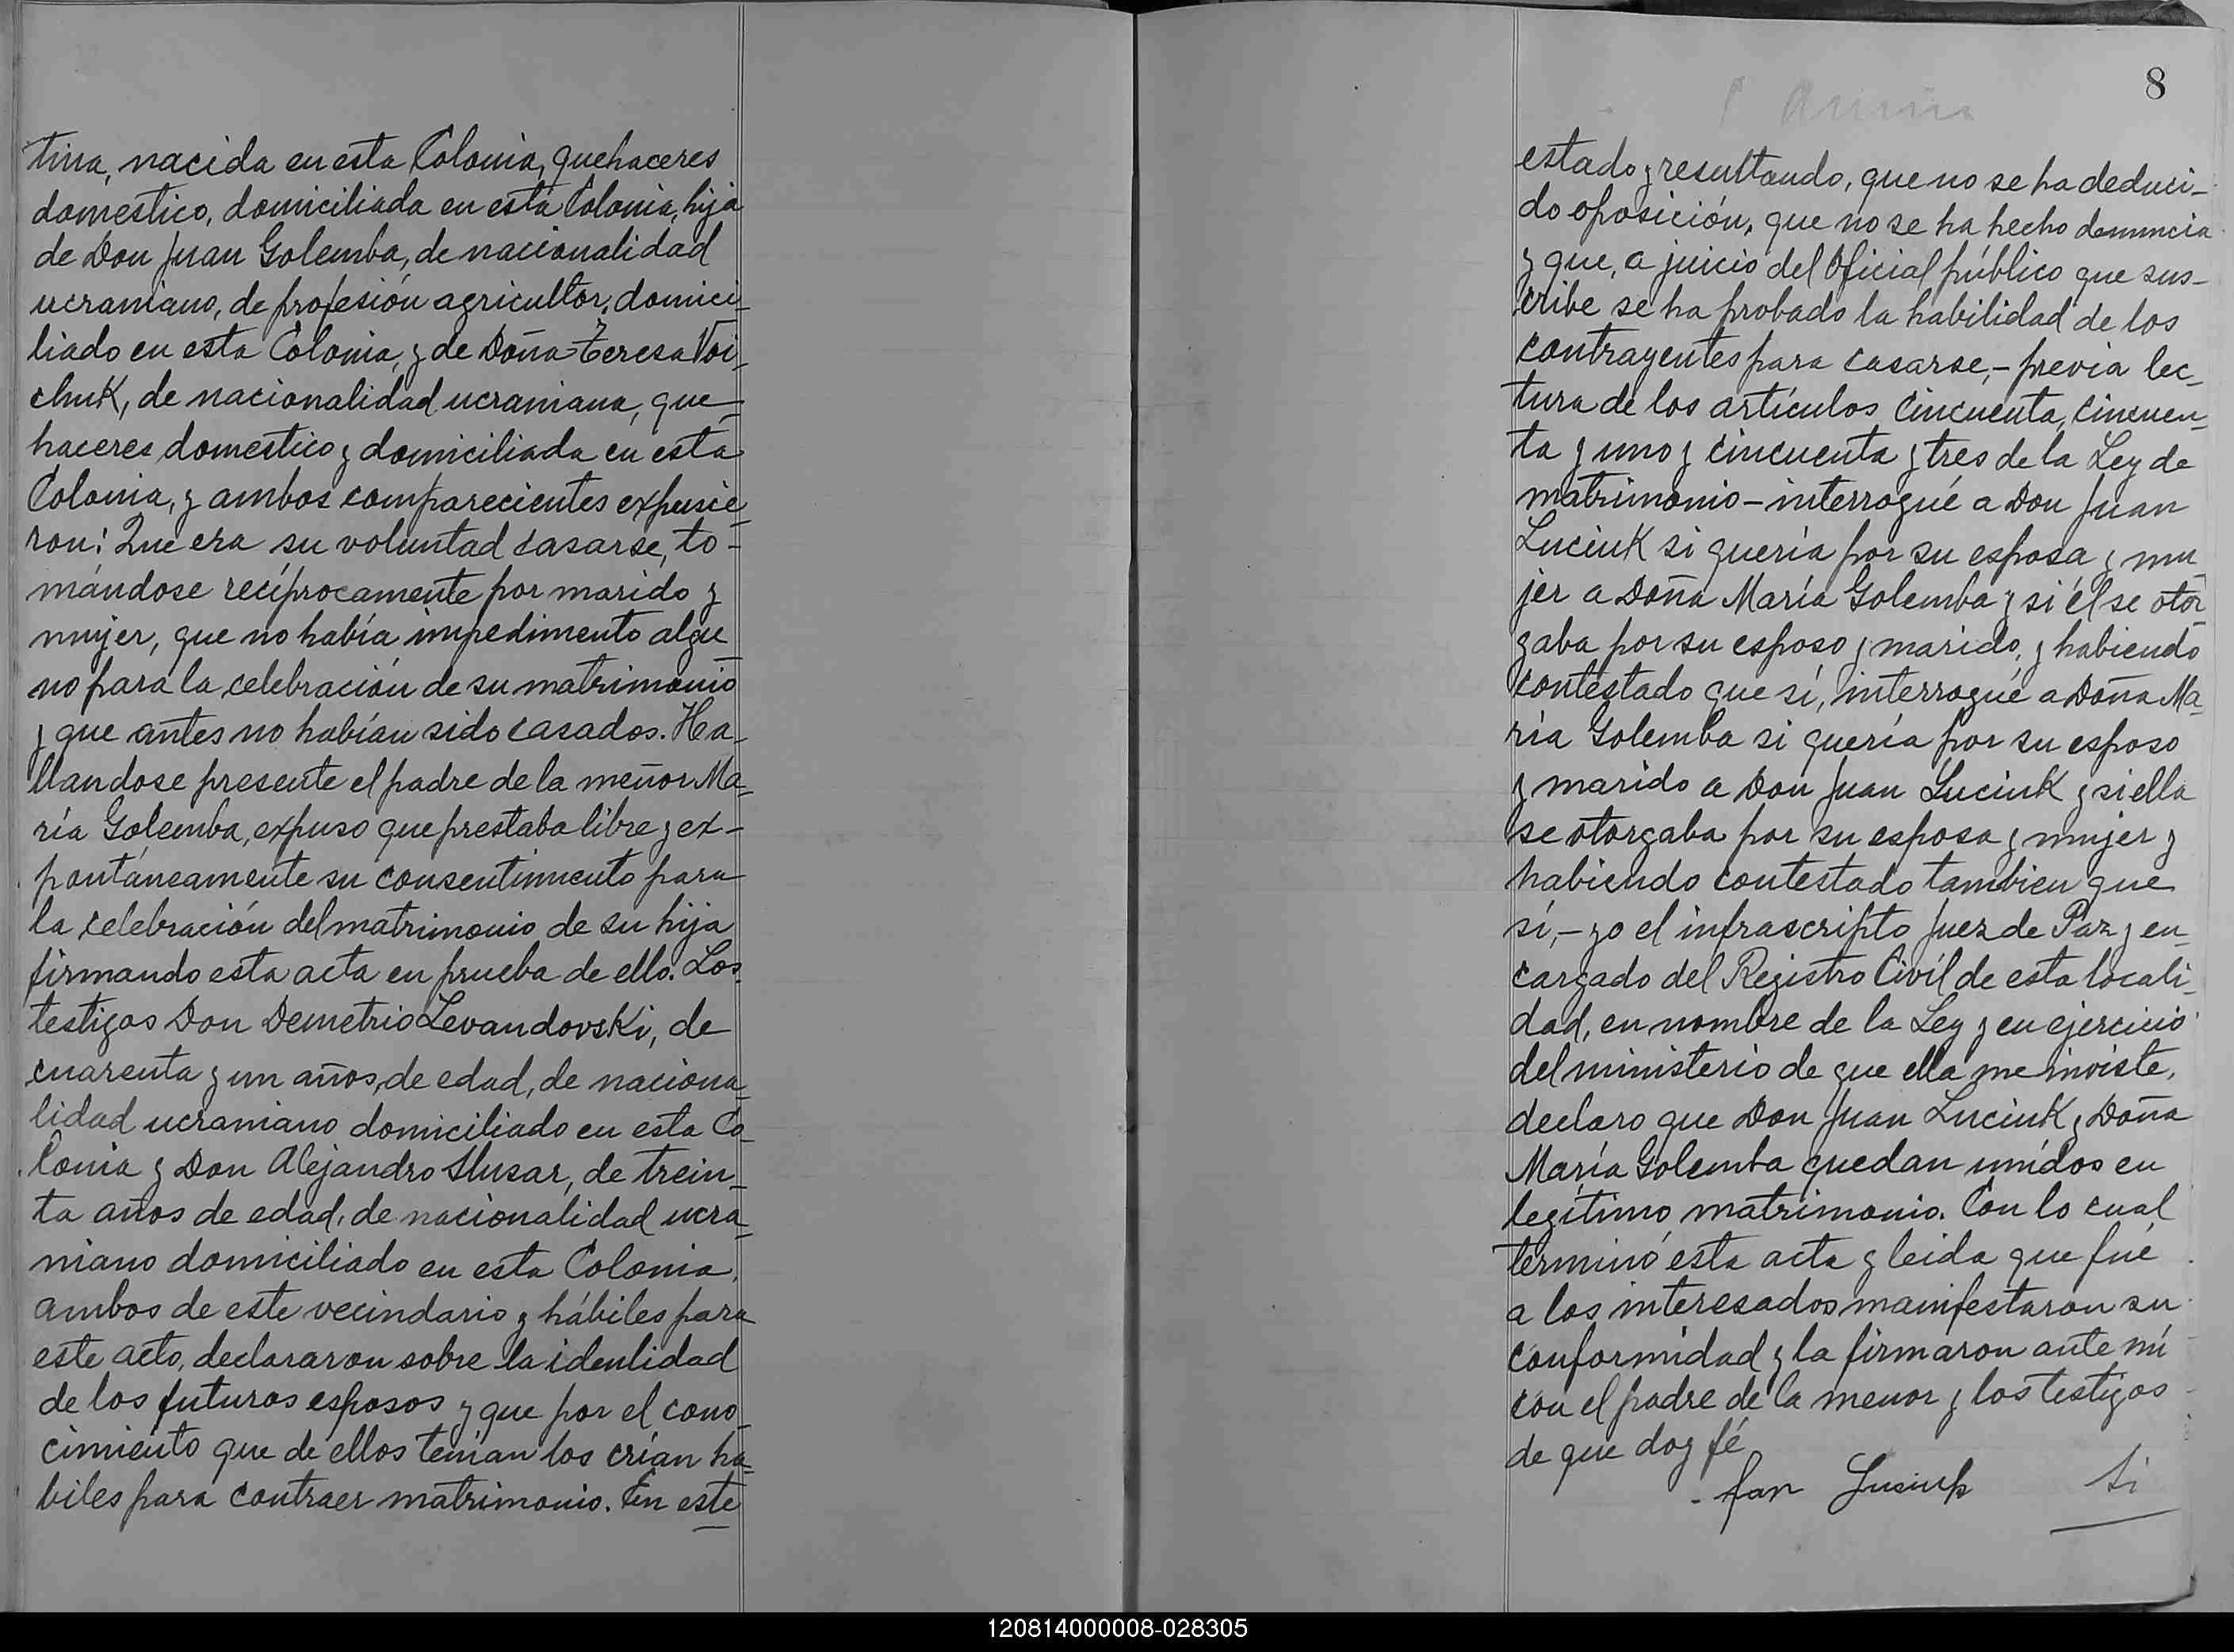 tina, nacida en esta Colonia, quehaceres
domestico, domiciliada en esta Colonia, hija
de Don Juan Golemba, de nacionalidad
ucraniano, de profesión agricultor, domici-
liado en esta Colonia, y de Doña Teresa Voi-
chuk, de nacionalidad ucraniana, que-
haceres domestico y domiciliada en esta
Colonia, y ambos comparecientes expusie-
ron: Que era su voluntad casarse, to-
mándose recíprocamente por marido y
mujer, que no había impedimento algu-
no para la celebración de su matrimonio
y que antes no habían sido casados. Ha-
llandose presente el padre de la menor Ma-
ría Golemba, expuso que prestaba libre y ex-
pontáneamente su consentimiento para
la celebración del matrimonio de su hija
firmando esta acta en prueba de ello. Los
testigos Don Demetrio Levandovski, de
cuarenta y un años, de edad, de naciona-
lidad ucraniano domiciliado en esta Co-
lonia y Don Alejandro Slusar, de trein-
ta años de edad, de nacionalidad ucra-
niano domiciliado en esta Colonia,
ambos de este vecindario y hábiles para
este acto, declararon sobre la identidad
de los futuros esposos y que por el cono-
cimiento que de ellos tenian los crían há-
biles para contraer matrimonio. En este
8
estado y resultando, que no se ha deduci-
do oposición, que no se ha hecho denuncia
y que, a juicio del Oficial público que sus-
cribe se ha probado la habilidad de los
contrayentes para casarse,- previa lec-
tura de los artículos cincuenta, cincuen-
ta y uno y cincuenta y tres de la Ley de
matrimonio - interrogué a Don Juan
Luciuk si quería por su esposa y mu-
jer a Doña María Golemba y si él se otor-
gaba por su esposo y marido, y habiendo
contestado que sí, interrogué a Doña Ma-
ría Golemba si quería por su esposo
y marido a Don Juan Luciuk y si ella
se otorgaba por su esposa y mujer y
habiendo contestado tambien que
sí,- yo el infrascripto Juez de Paz y en-
cargado del Registro Civil de esta locali-
dad, en nombre de la Ley y en ejercicio
del ministerio de que ella me inviste,
declaro que Don Juan Luciuk y Doña
María Golemba quedan unidos en
legítimo matrimonio. Con lo cual
terminó esta acta y leida que fué
a los interesados manifestaron su
conformidad y la firmaron ante mí
con el padre de la menor y los testigos
de que doy fé
Jan Luciuk
120814000008-028305